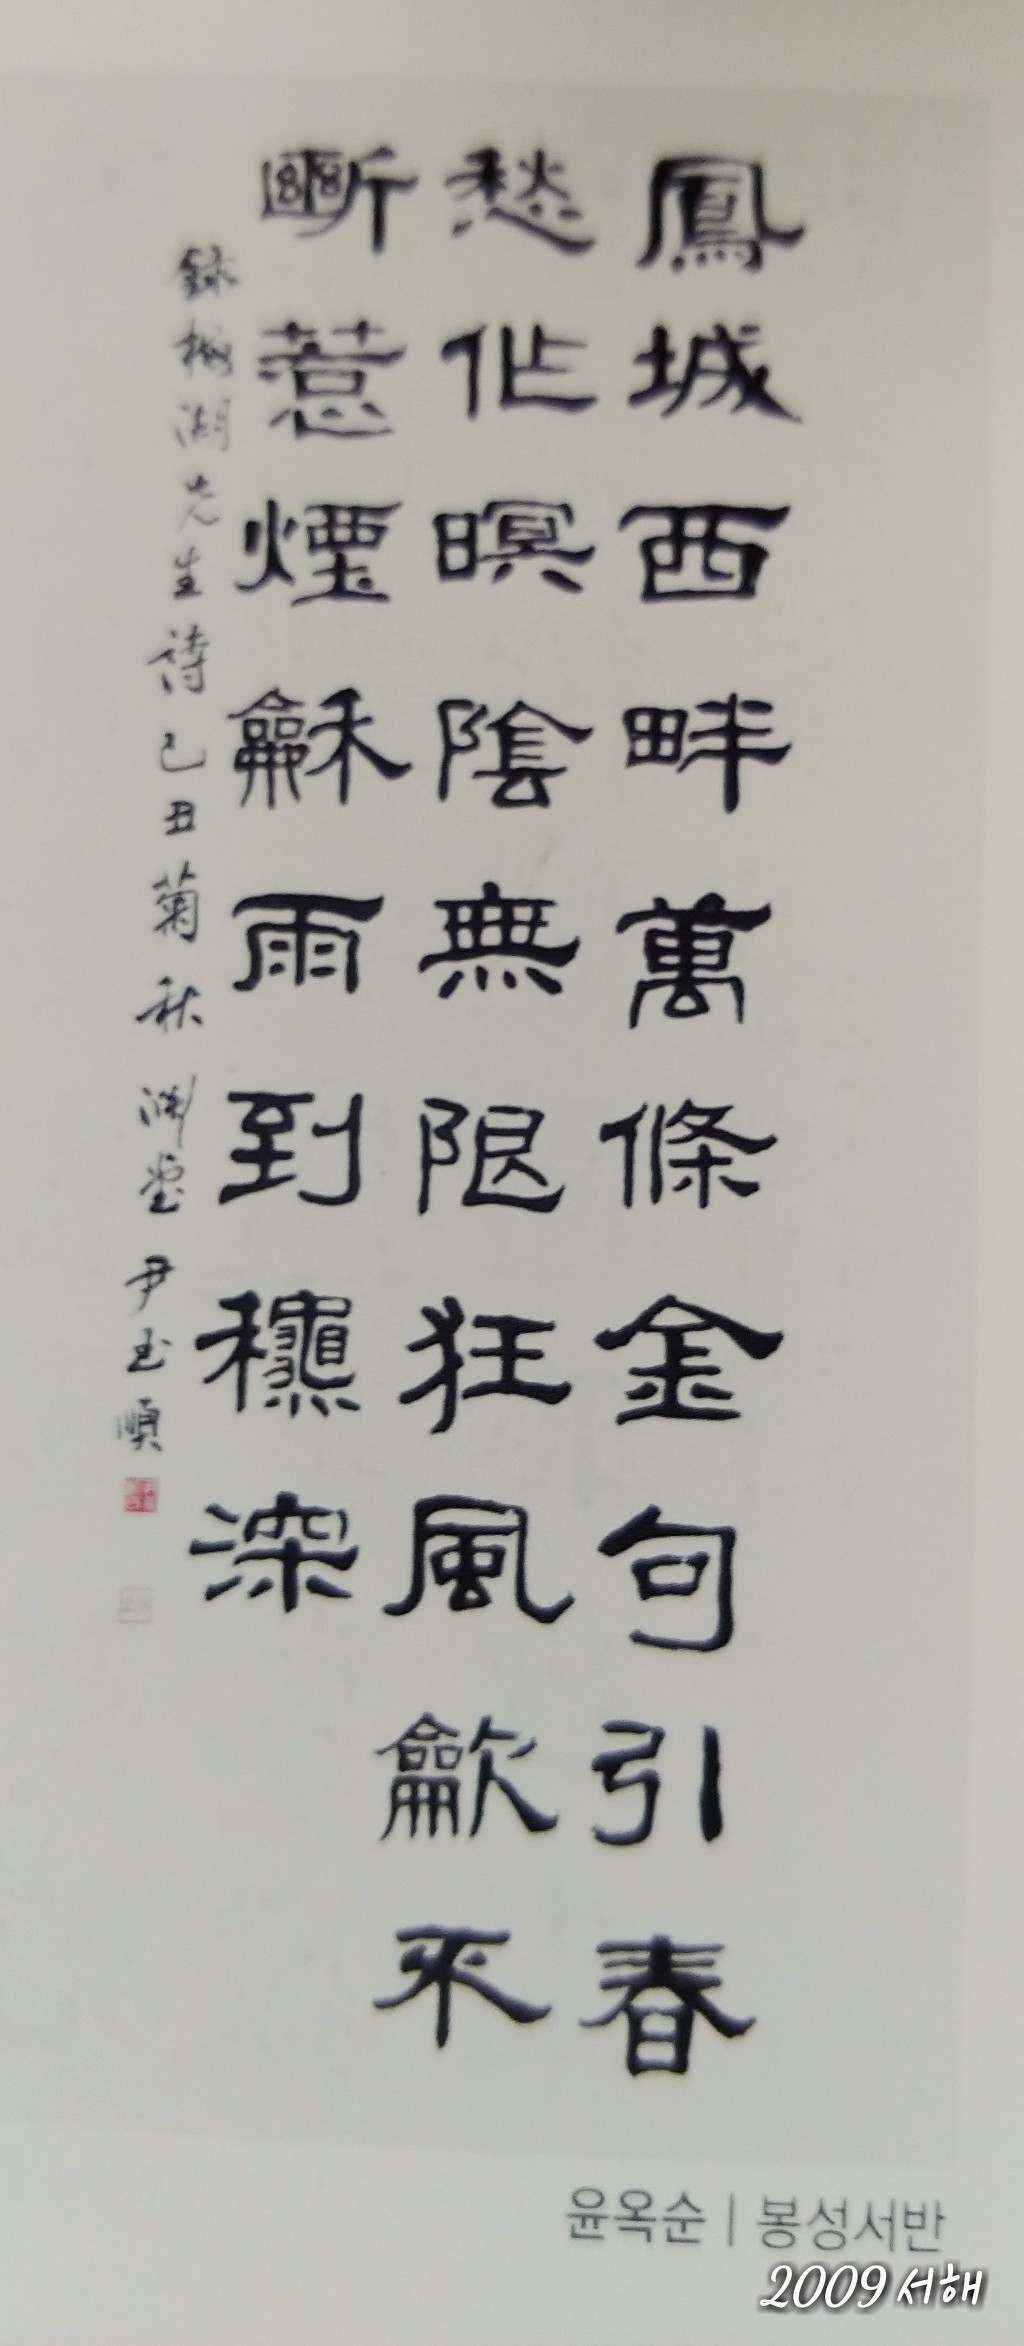 鳳城西畔萬條金句引春
愁作暝陰無限狂風歙不
斷惹煙龢雨到穠深
錄梅湖先生詩己丑菊秋 淵堂 尹玉順
윤옥순 | 봉성서반
2009 서해